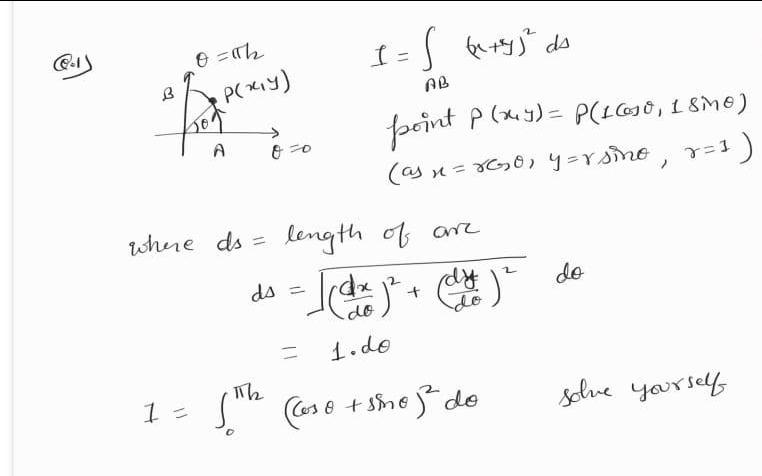 Q.1)
θ = π/2
B
P(x,y)
θ
A
θ=0
I = ∫_AB (x+y)² ds
point P(x,y) = P(1cosθ, 1 sinθ)
(as x = rcosθ, y = r sinθ, r=1)
where ds = length of arc
ds = √((dx/dθ)² + (dy/dθ)²) dθ
= 1.dθ
I = ∫_0^π/2 (cosθ + sinθ)² dθ solve yourself